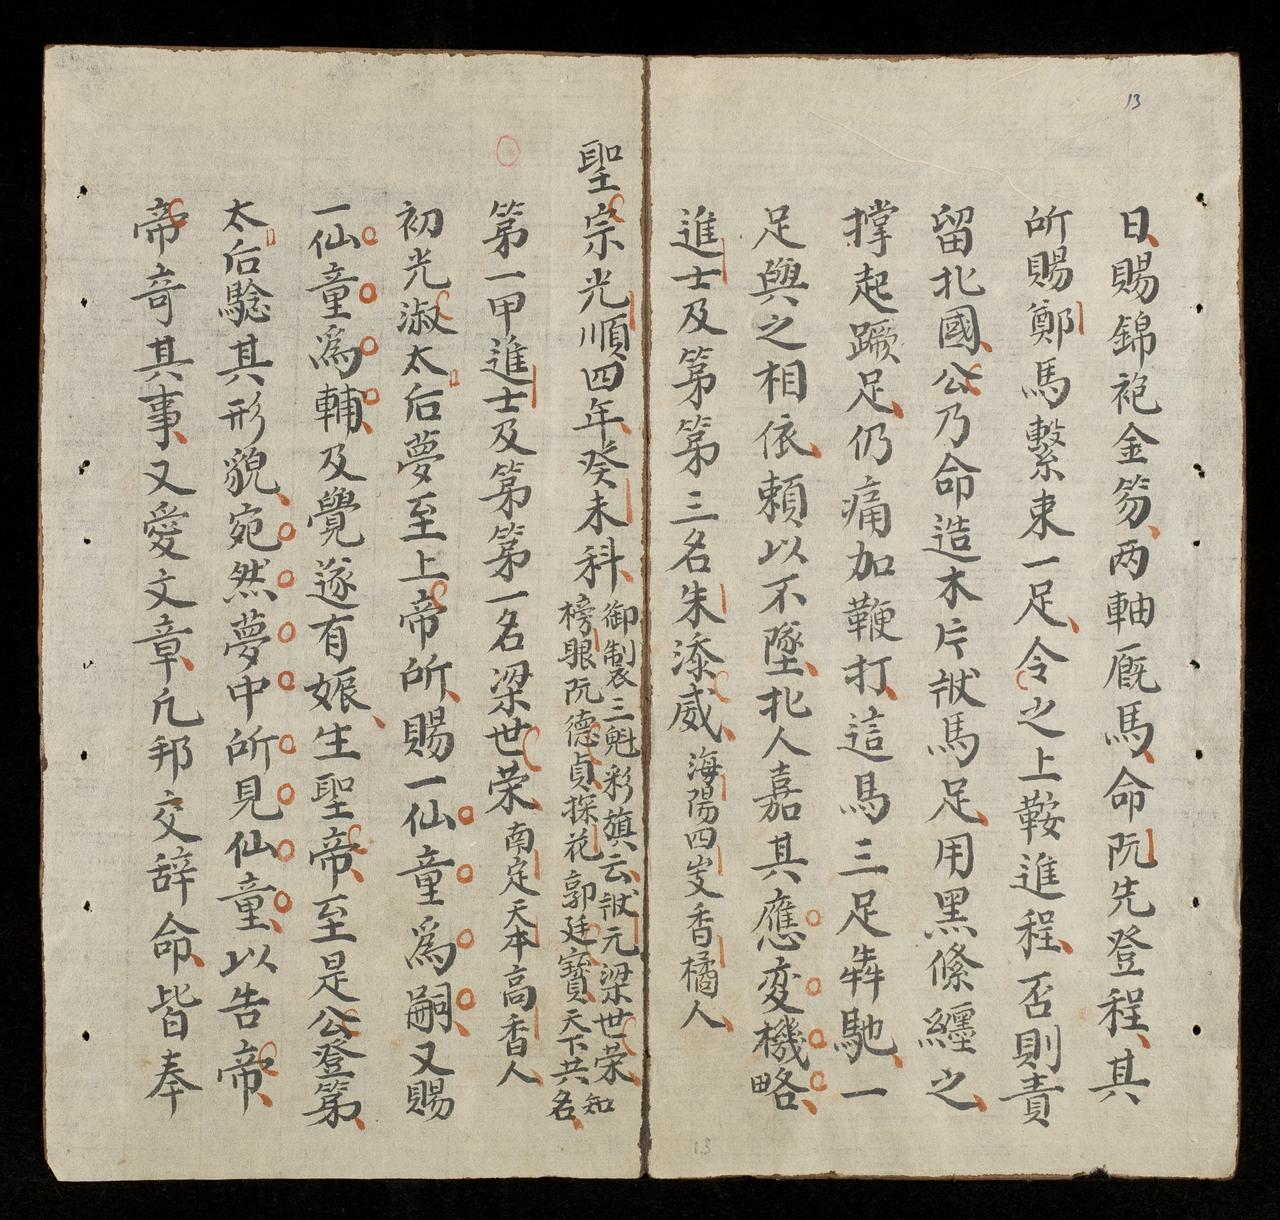 13
日賜錦袍金笏两軸厩馬命阮先登程其
所賜鄭馬繫束一足令之上鞍進程否則責
留北國公乃命造木片狀馬足用黑絛纏之
撑起蹶足仍痛加鞭打這馬三足犇馳一
足與之相依頼以不墜北人嘉其應変機略
進士及第第三名朱添威海陽四岐香橘人
聖宗光順四年癸未科御製三魁彩旗云狀元梁世荣
榜眼阮德貞探花郭廷寶天下共知名
第一甲進士及第第一名梁世荣南定天本高香人
初光淑太后夢至上帝所賜一仙童爲嗣又賜
一仙童爲輔及覺遂有娠生聖帝至是公登第
太后騐其形貌宛然夢中所見仙童以告帝
帝竒其事又愛文章凡邦交辞命皆奉
13